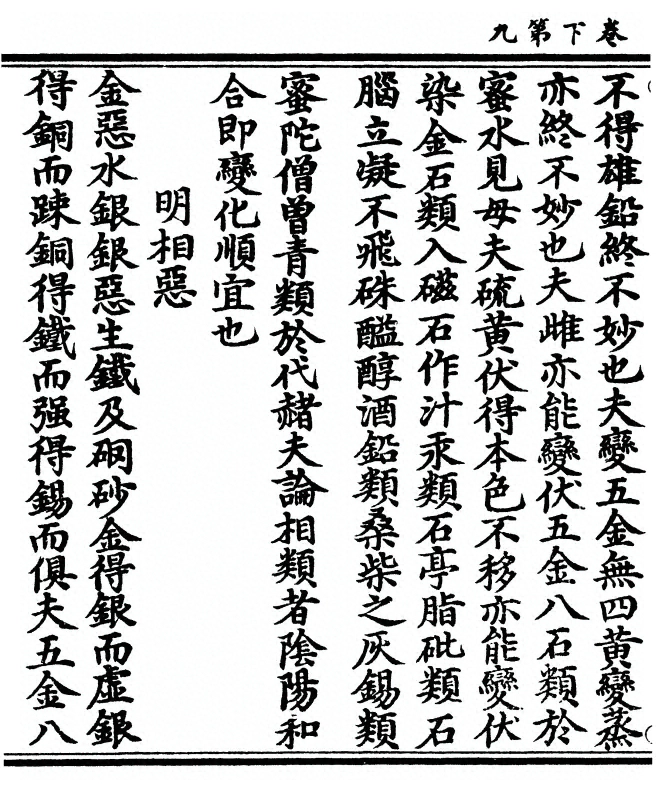 卷下第九
不得雄鉛終不妙也夫變五金無四黃變蒸
亦終不妙也夫雌亦能變伏五金八石類於
蜜水見母夫硫黃伏得本色不移亦能變伏
染金石類入磁石作汁汞類石亭脂砒類石
腦立凝不飛硃醢醇酒鉛類桑柴之灰錫類
蜜陀僧曾青類於代赭夫論相類者陰陽和
合即變化順宜也
明相惡
金惡水銀銀惡生鐵及硇砂金得銀而虛銀
得銅而踈銅得鐵而强得錫而俱夫五金八